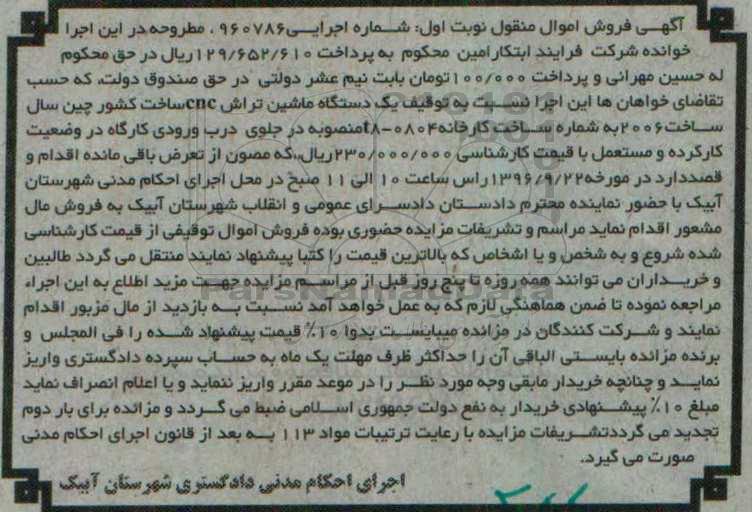 آگهی فروش اموال منقول نوبت اول: شماره اجرایی۹۶۰۷۸۶ ، مطروحه در این اجرا
خوانده شرکت فرایند ابتکار امین محکوم به پرداخت ۱۲۹/۶۵۲/۶۱۰ریال در حق محکوم
له حسین مهرانی و پرداخت ۱۰۰/۰۰۰تومان بابت نیم عشر دولتی در حق صندوق دولت، که حسب
تقاضای خواهان ها این اجرا نسبت به توقیف یک دستگاه ماشین تراش cncساخت کشور چین سال
ساخت۲۰۰۶به شماره ساخت کارخانه۰۸۰۴-۱۸منصوبه در جلوی درب ورودی کارگاه در وضعیت
کارکرده و مستعمل با قیمت کارشناسی ۲۳۰/۰۰۰/۰۰۰ریال،،که مصون از تعرض باقی مانده اقدام و
قصددارد در مورخه۱۳۹۶/۹/۲۲راس ساعت ۱۰ الی ۱۱ صبح در محل اجرای احکام مدنی شهرستان
آبیک با حضور نماینده محترم دادستان دادسرای عمومی و انقلاب شهرستان آبیک به فروش مال
مشعور اقدام نماید مراسم و تشریفات مزایده حضوری بوده فروش اموال توقیفی از قیمت کارشناسی
شده شروع و به شخص و یا اشخاص که بالاترین قیمت را کتبا پیشنهاد نمایند منتقل می گردد طالبین
و خریداران می توانند همه روزه تا پنج روز قبل از مراسم مزایده جهت مزید اطلاع به این اجراء
مراجعه نموده تا ضمن هماهنگی لازم که به عمل خواهد آمد نسبت به بازدید از مال مزبور اقدام
نمایند و شرکت کنندگان در مزانده میبایست بدوا ۱۰٪ قیمت پیشنهاد شده را فی المجلس و
برنده مزانده بایستی الباقی آن را حداکثر ظرف مهلت یک ماه به حساب سپرده دادگستری واریز
نماید و چنانچه خریدار مابقی وجه مورد نظر را در موعد مقرر واریز ننماید و یا اعلام انصراف نماید
مبلغ ۱۰٪ پیشنهادی خریدار به نفع دولت جمهوری اسلامی ضبط می گردد و مزانده برای بار دوم
تجدید می گرددتشریفات مزایده با رعایت ترتیبات مواد ۱۱۳ به بعد از قانون اجرای احکام مدنی
صورت می گیرد.
اجرای احکام مدنی دادگستری شهرستان آبیک